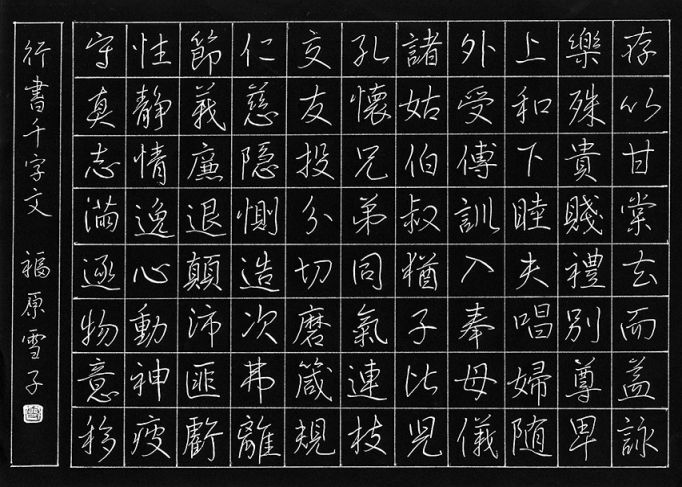 存以甘棠去而益詠
樂殊貴賤禮別尊卑
上和下睦夫唱婦随
外受傅訓入奉母儀
諸姑伯叔猶子比児
孔懐兄弟同氣連枝
交友投分切磨箴規
仁慈隠惻造次弗離
節義廉退顛沛匪虧
性静情逸心動神疲
守真志満逐物意移
行書千字文 福原雪子